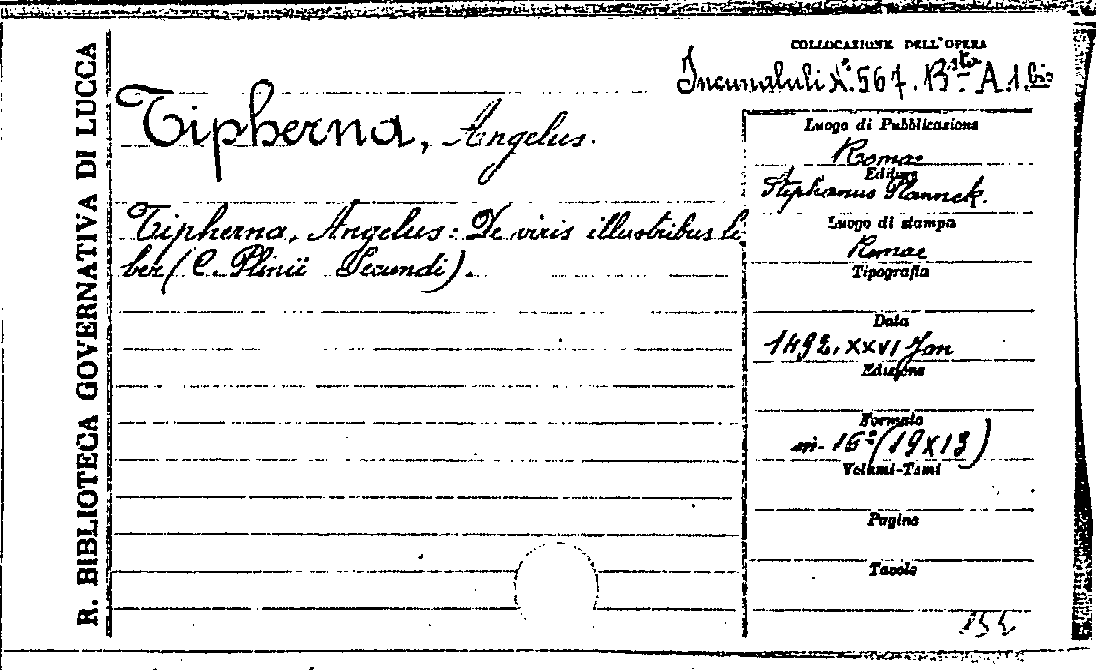 R. BIBLIOTECA GOVERNATIVA DI LUCCA
COLLOCAZIONE DELL'OPERA
Incunabuli N.° 567. B.sta A.1.bis
Tipherna, Angelus.
Tipherna, Angelus: De viris illustribus li
ber (C. Plinii Secundi).
Luogo di Pubblicazione
Romae
Editore
Stephanus Plannck.
Luogo di stampa
Romae
Tipografia
Data
1492. XXVI Jan
Edizione
Formato
in-16° (19x13)
Volumi-Tomi
Pagine
Tavole